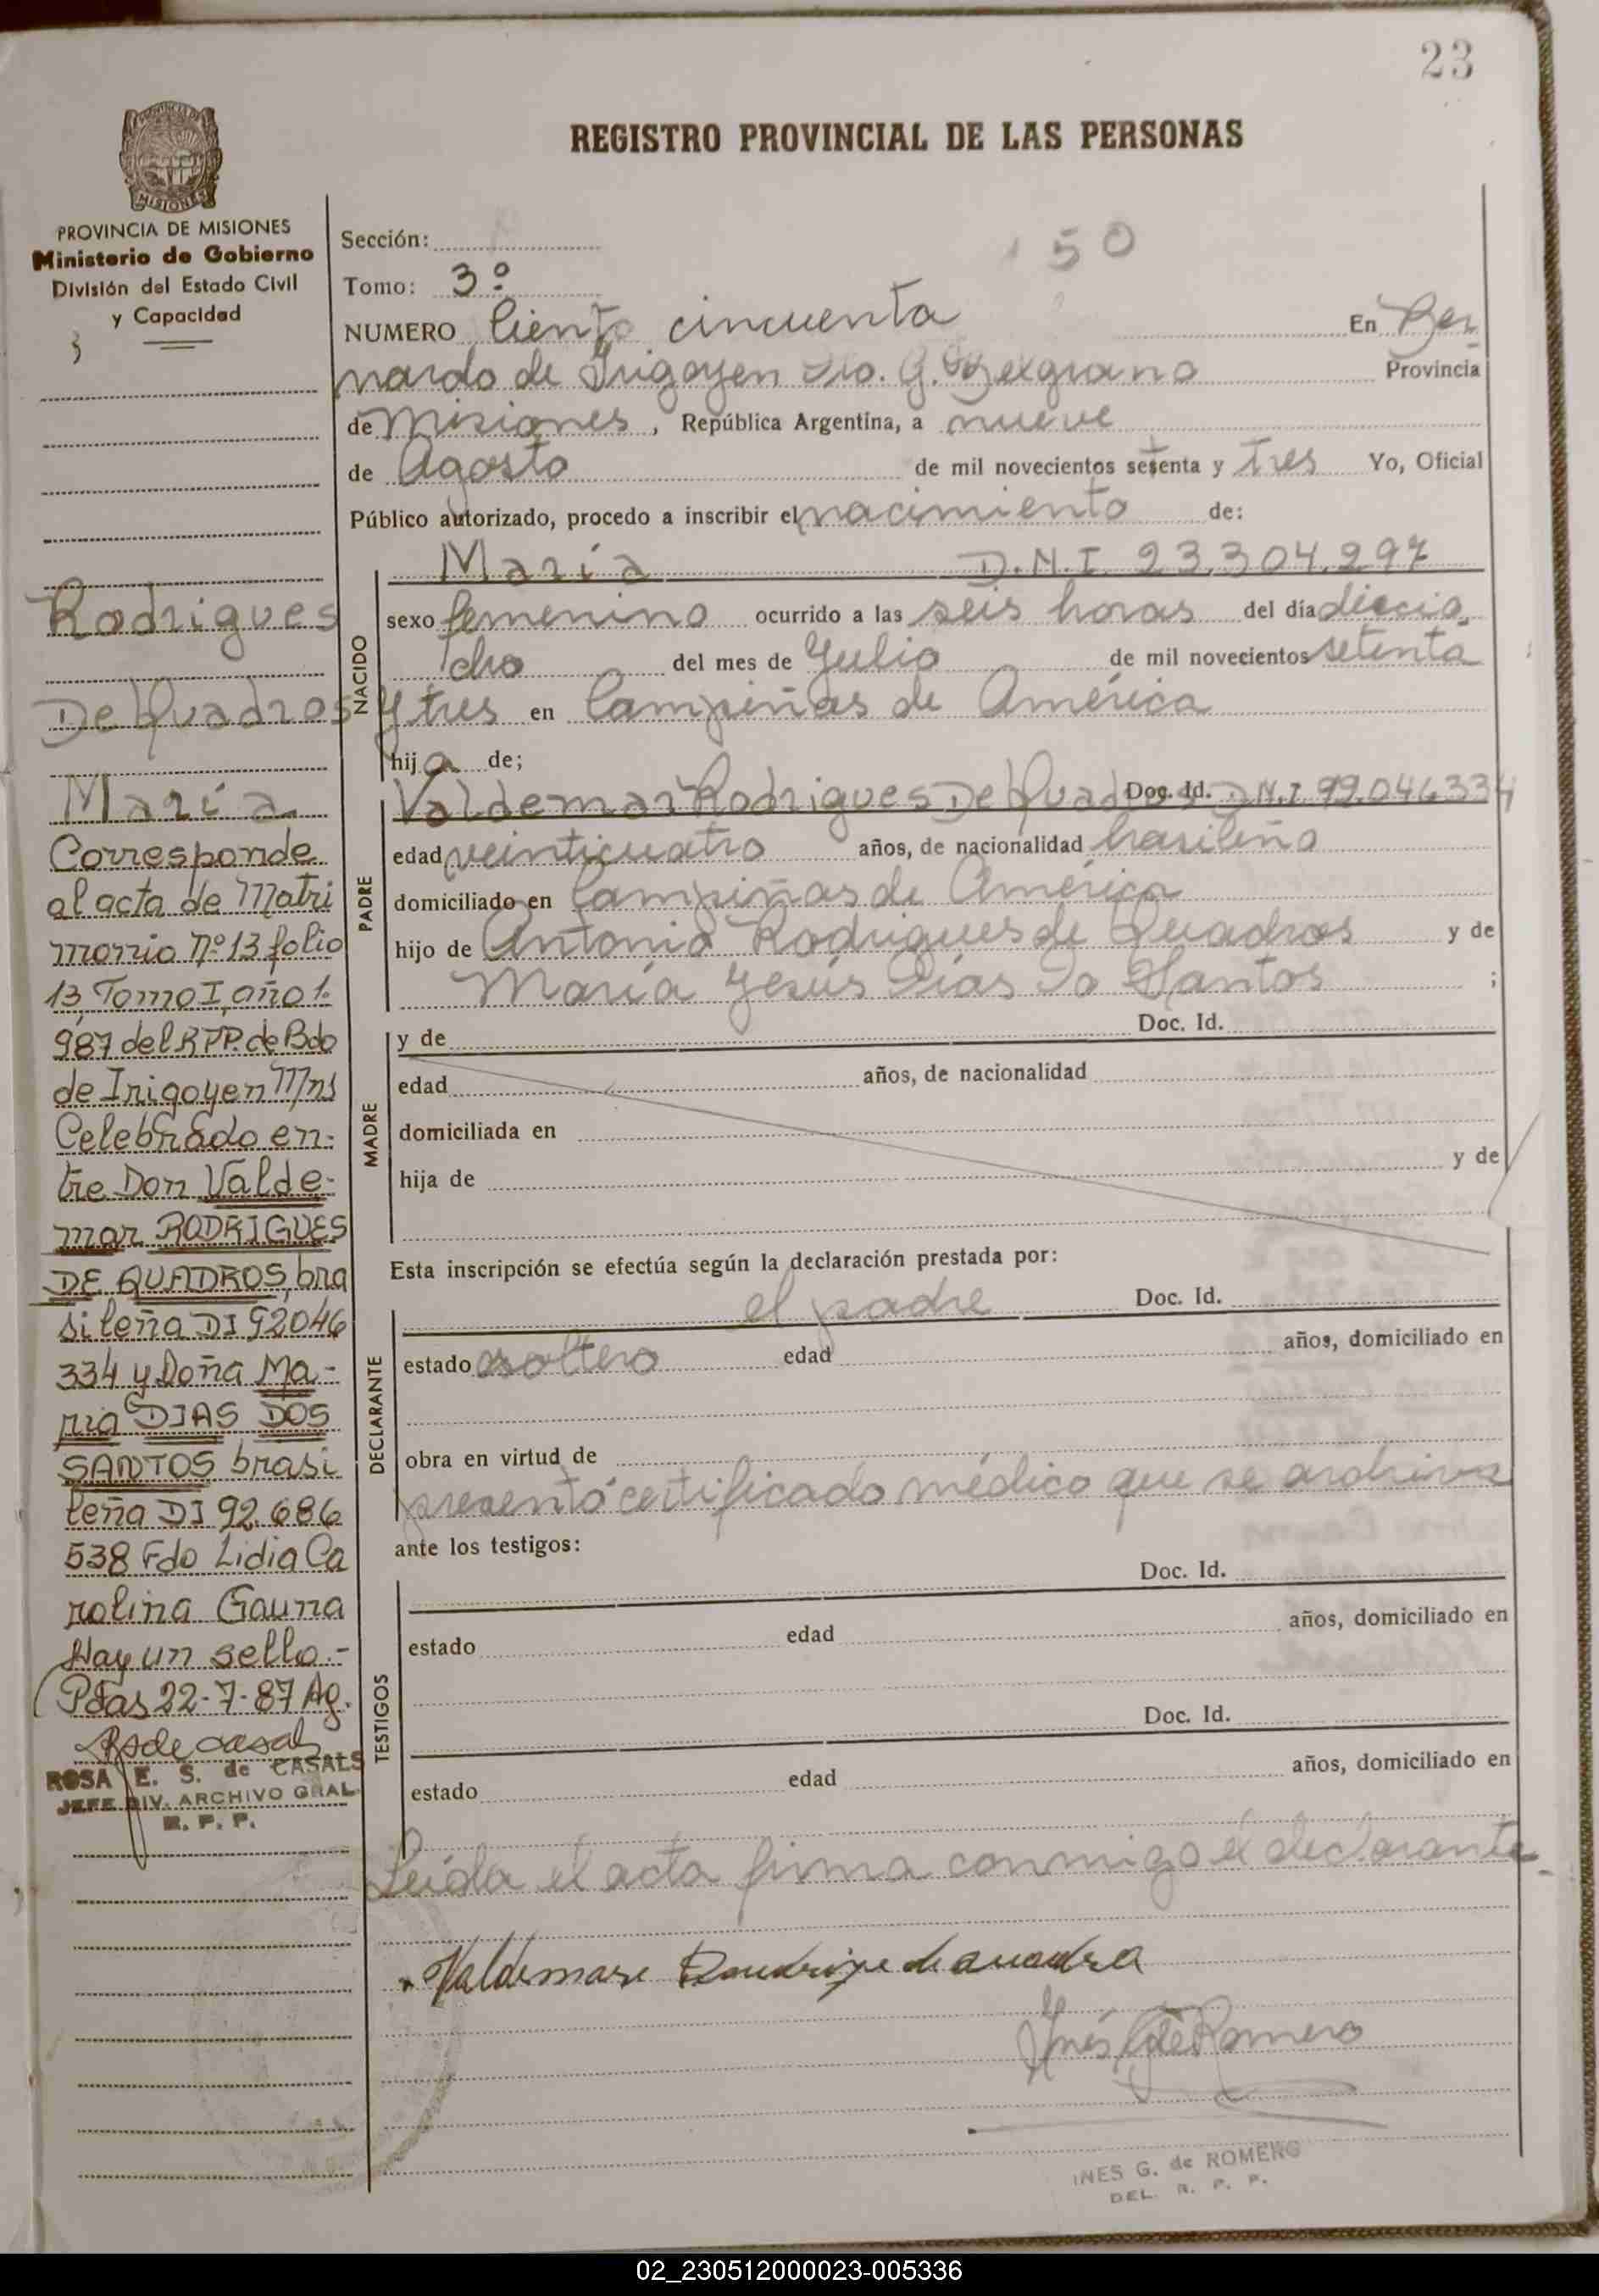 23
REGISTRO PROVINCIAL DE LAS PERSONAS
MISIONES
PROVINCIA DE MISIONES
Ministerio de Gobierno
División del Estado Civil
y Capacidad
3
Rodrigues
De Quadros
María
Corresponde
al acta de Matri
monio Nº 13 folio
13, Tomo I, año 1.
987 del R.P.P. de Bdo
de Irigoyen Mns
Celebrado en-
tre Don Valde-
mar RODRIGUES
DE QUADROS, bra
sileña DI 92046
334 y Doña Ma-
ria DIAS DOS
SANTOS brasi
leña DI 92.686
538 Fdo Lidia Ca
rolina Gauna
Hay un sello.-
Pdas 22-7-87 Ag.
Rs de Casals
ROSA E. S. de CASALS
JEFE DIV. ARCHIVO GRAL
R. P. P.
Sección:
150
Tomo: 3º
NUMERO Ciento cincuenta En Ber
nardo de Irigoyen Dto. G. Belgrano Provincia
de Misiones, República Argentina, a nueve
de Agosto de mil novecientos setenta y tres Yo, Oficial
Público autorizado, procedo a inscribir el nacimiento de:
María D.N.I. 23.304.297
NACIDO
sexo femenino ocurrido a las seis horas del día diecio
cho del mes de Julio de mil novecientos setenta
y tres en Campiñas de América
hija de;
PADRE
Valdemar Rodrigues De Quadros Doc. Id. D.N.I 92.046334
edad veinticuatro años, de nacionalidad brasileña
domiciliado en Campiñas de América
hijo de Antonio Rodrigues de Quadros y de
María Jesús Días Do Santos ;
MADRE
y de Doc. Id.
edad años, de nacionalidad
domiciliada en
hija de y de
Esta inscripción se efectúa según la declaración prestada por:
DECLARANTE
el padre Doc. Id.
estado soltero edad años, domiciliado en
obra en virtud de
presentó certificado médico que se archiva
ante los testigos:
TESTIGOS
Doc. Id.
estado edad años, domiciliado en
Doc. Id.
estado edad años, domiciliado en
Leída el acta firma conmigo el declarante.
Valdemar
Inés G de Romero
INES G. de ROMERO
DEL. R. P. P.
02_230512000023-005336